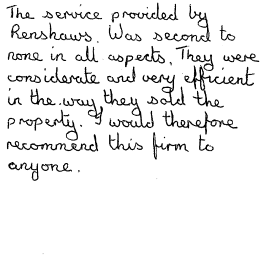 The service provided by
Renshaws. Was second to
none in all aspects. They were
considerate and very efficient
in the way they sold the
property. I would therefore
recommend this firm to
anyone.